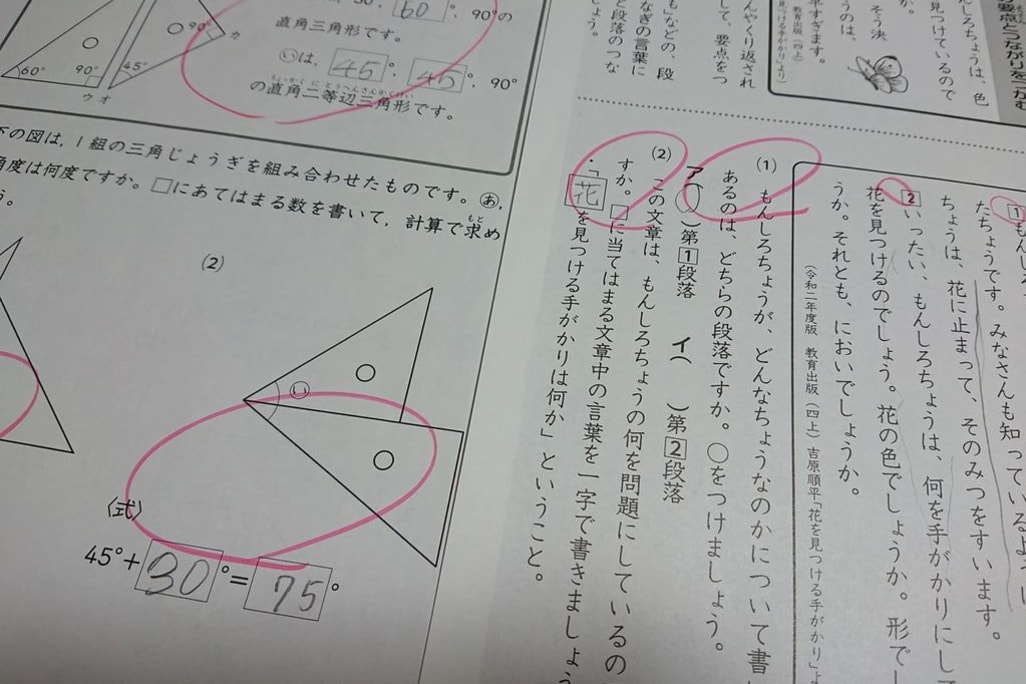 60°, 90°の
直角三角形です。
㋑は, 45°, 45°, 90°
の直角二等辺三角形です。
60°
90°
45°
90°
ウ
オ
カ
下の図は, 1組の三角じょうぎを組み合わせたものです。㋐,
角度は何度ですか。□にあてはまる数を書いて, 計算で求め
う。
(2)
㋑
〈式〉
45°+30°=75°
要点とつながりをつかむ
んしろちょうは、色
見つけているので
そう決
うのは、
早すぎます。
教育出版(四上)
見つける手がかり」より
もなどの、段
んやくり返され
して、要点をつ
なぎの言葉に
と段落のつな
しょう。
1 もんしろ
たちょうです。みなさんも知っているように
ちょうは、花に止まって、そのみつをすいます。
2 いったい、もんしろちょうは、何を手がかりにして
花を見つけるのでしょう。花の色でしょうか。形でし
うか。それとも、においでしょうか。
(令和二年度版 教育出版(四上)吉原順平「花を見つける手がかり」よ
(1) もんしろちょうが、どんなちょうなのかについて書
あるのは、どちらの段落ですか。○をつけましょう。
ア(○)第1段落 イ( )第2段落
(2) この文章は、もんしろちょうの何を問題にしているの
すか。□に当てはまる文章中の言葉を一字で書きましょう
・「花を見つける手がかりは何か」ということ。